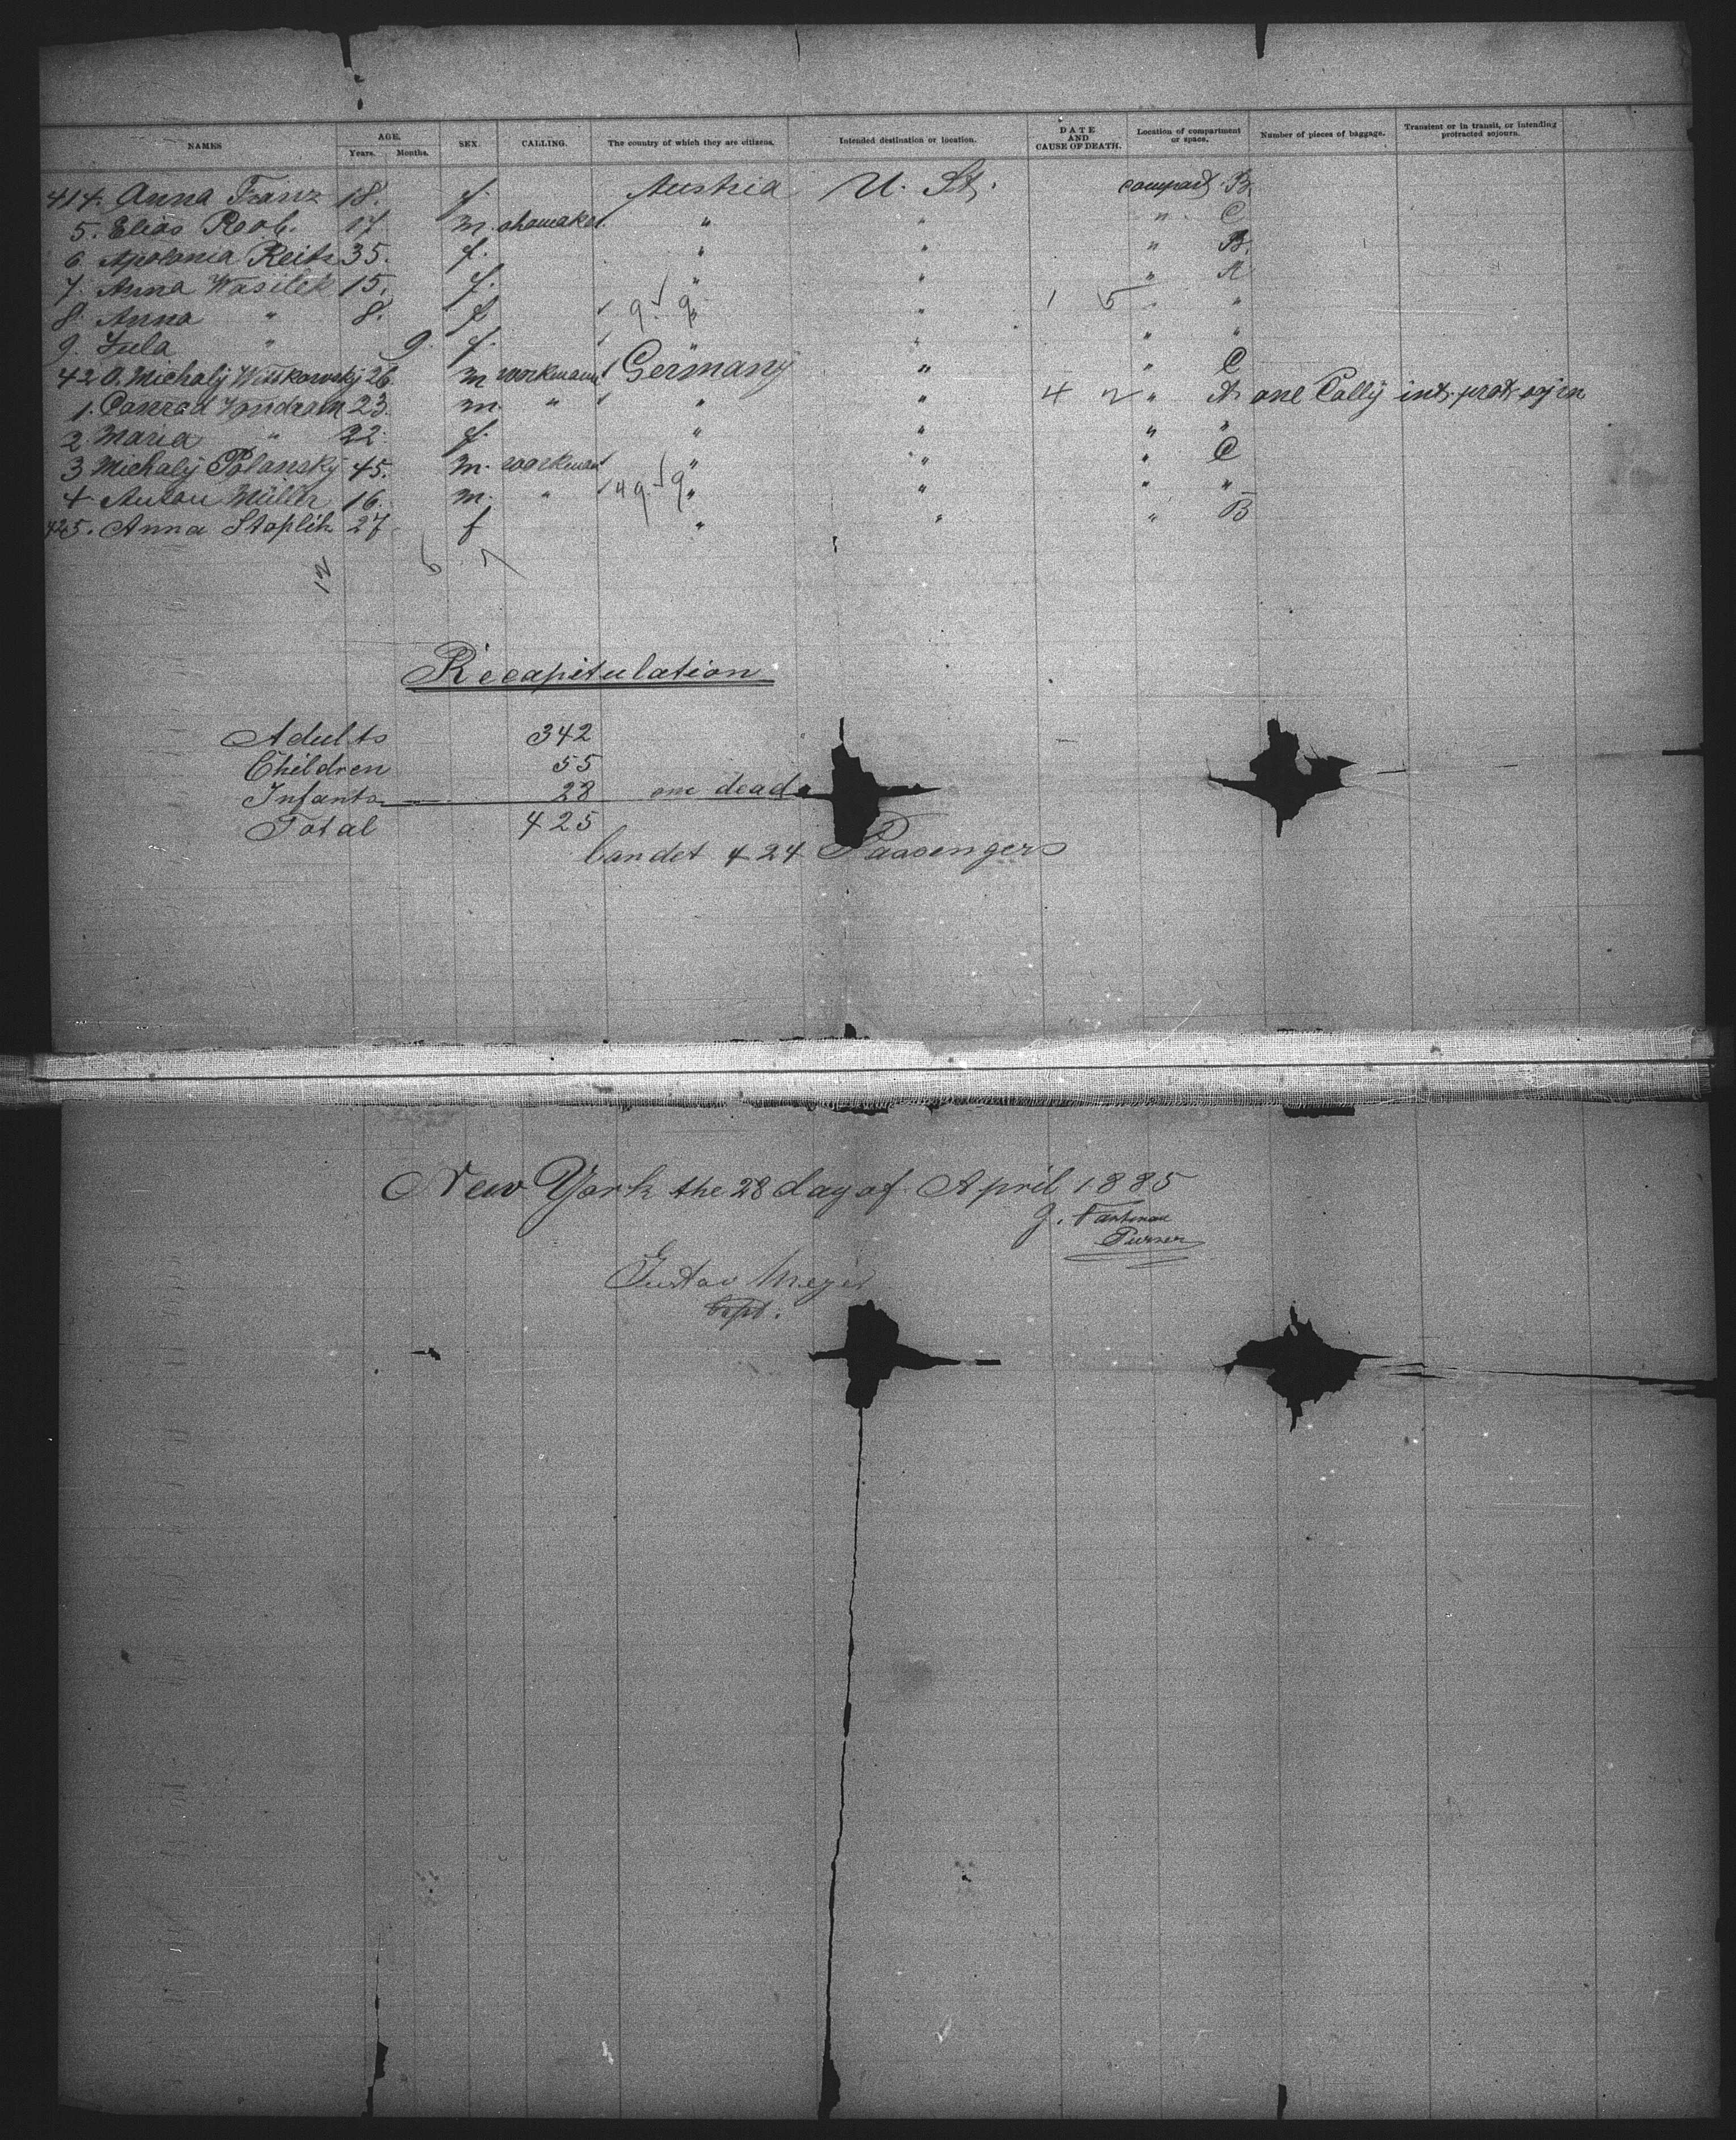 NAMES AGE. Years. Months. SEX. CALLING. The country of which they are citizens. Intended destination or location. DATE AND CAUSE OF DEATH. Location of compartment or space. Number of pieces of baggage. Transient or in transit, or intending protracted sojourn.
414. Anna Franz 18. f. Austria U. St. compart. B.
5. Elias Roob. 17 m. shomaker. " " " C
6 Apolonia Reitz 35. f. " " " B.
7. Anna Wasilek 15. f. " " " A
8. Anna " 8. f. 9 9 " " 1 5 " "
9. Jula " 9. f. " " " "
420. Michalÿ Wisskowskÿ 26. m workmann Germany " " C
1. Conrad Vondran 23. m. " " " 4 2 " A one Collÿ int. prot. sojrn
2 Maria " 22. f. " " " "
3 Michalÿ Polanskÿ 45. m. workman " " " C
4 Anton Müller 16. m. " 49 9 " " " "
425. Anna Staplik 27 f " " " B
12 6 7
Recapitulation
Adults 342
Children 55
Infants 28 one dead
Total 425
landet 424 Passengers
New York the 28 day of April 1885
Purser
Gustav Meyer
Capt.